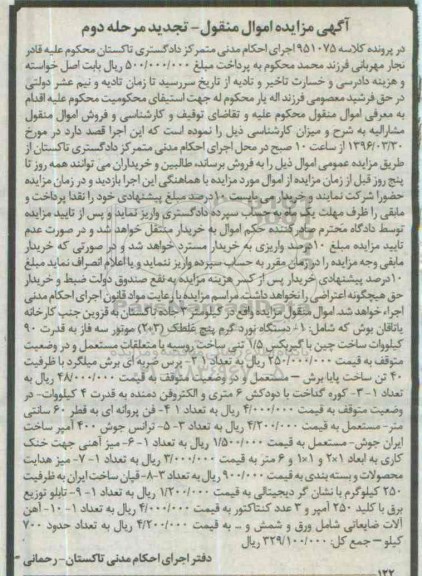 آگهی مزایده اموال منقول- تجدید مرحله دوم
در پرونده کلاسه ۹۵۱۰۷۵ اجرای احکام مدنی متمرکز دادگستری تاکستان محکوم علیه قادر
نجار مهربانی فرزند محمد محکوم به پرداخت مبلغ ۵۰۰/۰۰۰/۰۰۰ ریال بابت اصل خواسته
و هزینه دادرسی و خسارت تاخیر و تادیه از تاریخ سررسید تا زمان تادیه و نیم عشر دولتی
در حق فرشید معصومی فرزند اله یار محکوم له جهت استیفای محکومیت محکوم علیه اقدام
به معرفی اموال منقول محکوم علیه و تقاضای توقیف و کارشناسی و فروش اموال منقول
مشارالیه به شرح و میزان کارشناسی ذیل را نموده است که این اجرا قصد دارد در مورخ
۱۳۹۶/۰۳/۳۰ از ساعت ۱۰ صبح در محل اجرای احکام مدنی متمرکز دادگستری تاکستان از
طریق مزایده عمومی اموال ذیل را به فروش برساند، طالبین و خریداران می توانند همه روز تا
پنج روز قبل از زمان مزایده از اموال مورد مزایده با هماهنگی این اجرا بازدید و در زمان مزایده
حضورا شرکت نمایند و خریدار می بایست ۱۰درصد مبلغ پیشنهادی خود را نقدا پرداخت و
مابقی را ظرف مهلت یک ماه به حساب سپرده دادگستری واریز نماید و پس از تایید مزایده
توسط دادگاه محترم صادرکننده حکم اموال به خریدار منتقل خواهد شد و در صورت عدم
تایید مزایده مبلغ ۱۰درصد واریزی به خریدار مسترد خواهد شد و در صورتی که خریدار
مابقی وجه مزایده را در زمان مقرر به حساب سپرده واریز ننماید و یا اعلام انصراف نماید مبلغ
۱۰درصد پیشنهادی خریدار پس از کسر هزینه مزایده به نفع صندوق دولت ضبط و خریدار
حق هیچگونه اعتراضی را نخواهد داشت. مراسم مزایده با رعایت مواد قانون اجرای احکام مدنی
اجراء خواهد شد. اموال منقول مزایده واقع در کیلومتر ۳ جاده تاکستان به قزوین جنب کارخانه
یاتاقان بوش که شامل: ۱- دستگاه نورد گرم پنج غلطک (۲+۳) موتور سه فاز به قدرت ۹۰
کیلووات ساخت چین با گیربکس ۱/۵ تنی ساخت روسیه با متعلقات مستعمل و در وضعیت
متوقف به قیمت ۲۵۰/۰۰۰/۰۰۰ ریال به تعداد ۱ ۲- پرس ضربه ای برش میلگرد با ظرفیت
۴۰ تن ساخت پایا برش – مستعمل و در وضعیت متوقف به قیمت ۴۸/۰۰۰/۰۰۰ ریال به
تعداد ۱ -۳- کوره گداخت با دودکش ۶ متری و الکتروفن دمنده به قدرت ۴ کیلووات- در
وضعیت متوقف به قیمت ۴/۰۰۰/۰۰۰ ریال به تعداد ۱ ۴- فن پروانه ای به قطر ۶۰ سانتی
متر- مستعمل به قیمت ۴/۲۰۰/۰۰۰ ریال به تعداد ۳- ۵- ترانس جوش ۴۰۰ آمپر ساخت
ایران جوش- مستعمل به قیمت ۱/۵۰۰/۰۰۰ ریال به تعداد ۱-۶- میز آهنی جهت خنک
کاری به ابعاد ۱×۲ و ۱×۱ و ۶ متر به قیمت ۳/۰۰۰/۰۰۰ ریال به تعداد ۱- ۷- میز هدایت
محصولات و بسته بندی به قیمت ۹۰۰/۰۰۰ ریال به تعداد ۳-۸- قپان ساخت ایران به ظرفیت
۲۵۰ کیلوگرم با نشان گر دیجیتالی به قیمت ۱/۲۰۰/۰۰۰ ریال به تعداد ۱- ۹- تابلو توزیع
برق با کلید ۲۵۰ آمپر و ۳ عدد کنتاکتور به قیمت ۴/۰۰۰/۰۰۰ ریال به تعداد ۱-۱۰- آهن
آلات ضایعاتی شامل ورق و شمش و ... به قیمت ۴/۲۰۰/۰۰۰ ریال به تعداد حدود ۷۰۰
کیلو – جمع کل: ۳۲۹/۱۰۰/۰۰۰ ریال
دفتر اجرای احکام مدنی تاکستان- رحمانی
۱۳۲